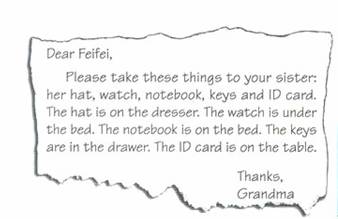 Dear Feifei,
Please take these things to your sister:
her hat, watch, notebook, keys and ID card.
The hat is on the dresser. The watch is under
the bed. The notebook is on the bed. The keys
are in the drawer. The ID card is on the table.
Thanks,
Grandma